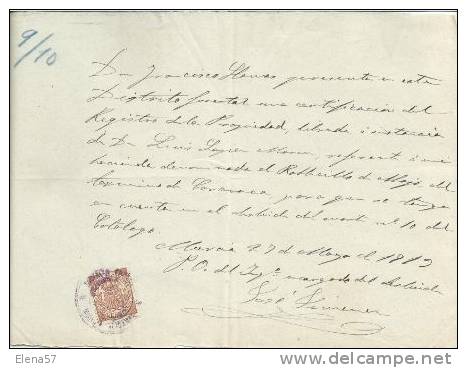 9/10
Don Francisco Llamas presenta en este
Distrito forestal una certificacion del
Registro de la Propiedad, librada á instancia
de Dn. Luis
hacienda denominada el Robledillo de Majo, del
termino de Caravaca, para que se tenga
en cuenta en el deslinde del monte nº 10 del
Catálogo.
Murcia 27 de Mayo de 1912
P.O. del Ingº encargado del deslinde
José Gimenez
Elena57
www.delcampe.net